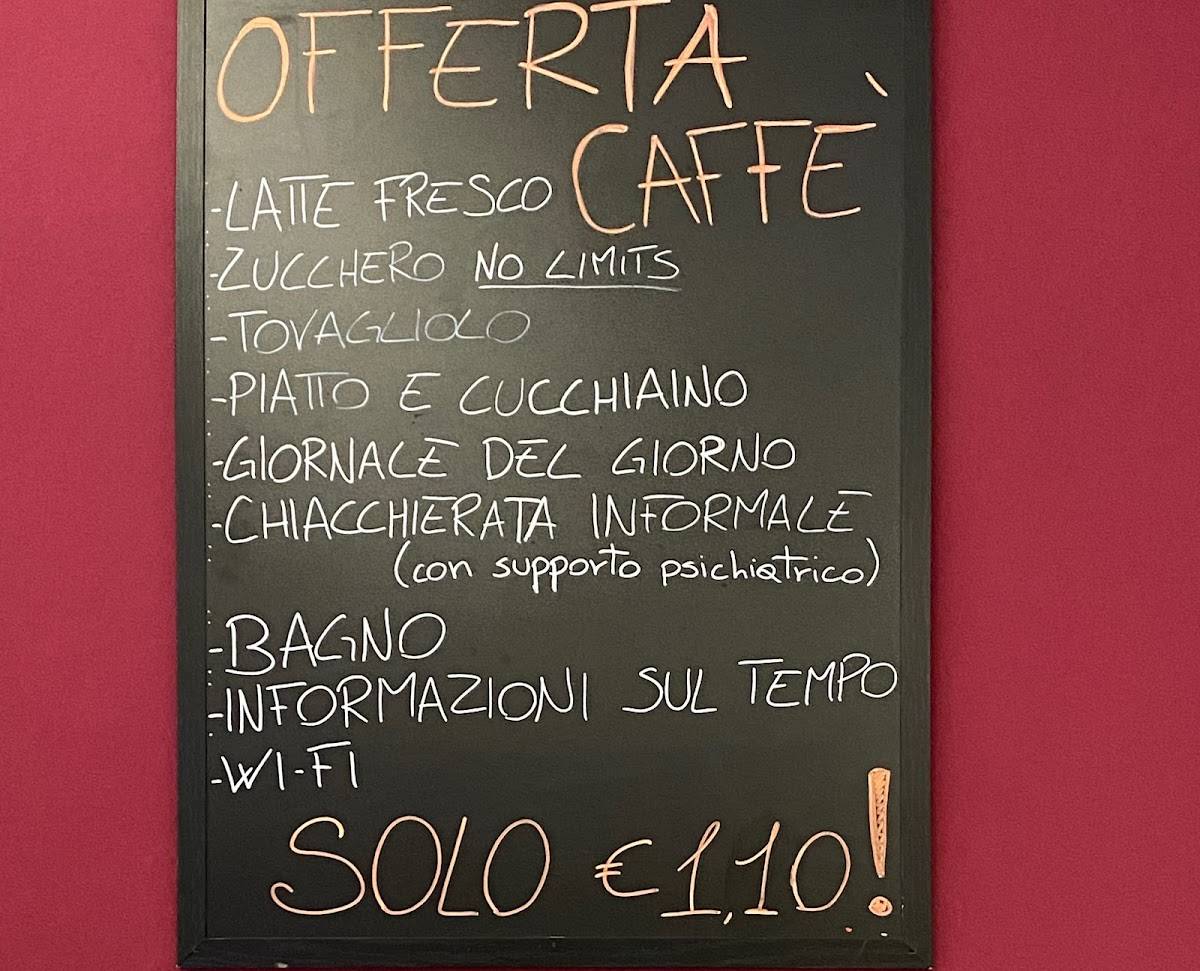 OFFERTA
CAFFÈ
-LATTE FRESCO
-ZUCCHERO NO LIMITS
-TOVAGLIOLO
-PIATTO E CUCCHIAINO
-GIORNALE DEL GIORNO
-CHIACCHIERATA INFORMALE
(con supporto psichiatrico)
-BAGNO
-INFORMAZIONI SUL TEMPO
-WI-FI
SOLO €1,10!